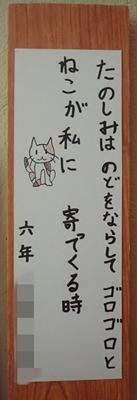 たのしみは のどをならして ゴロゴロと
ねこが私に 寄でくる時
六年